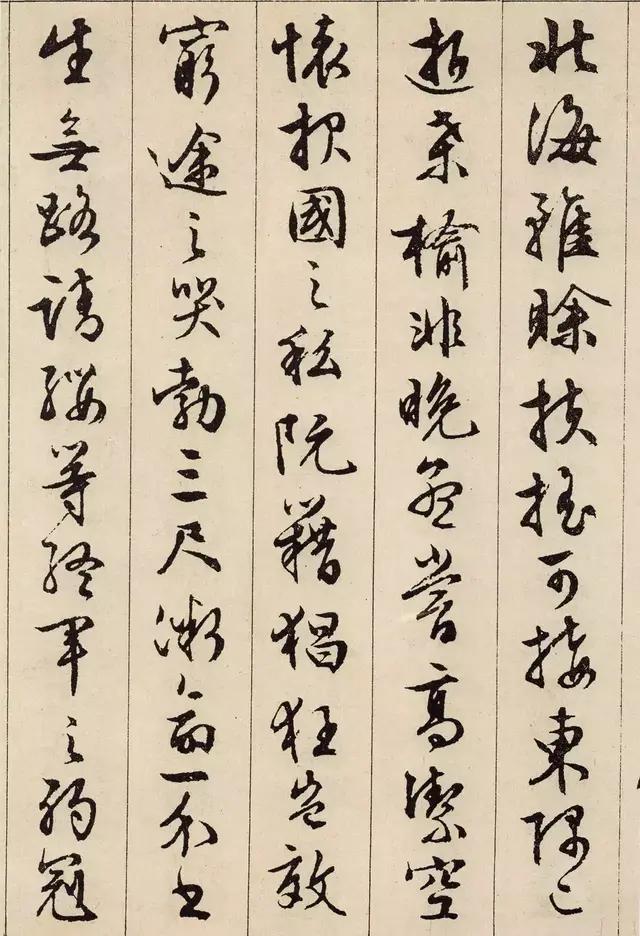 北海雖賒扶搖可接東隅已
逝桑榆非晚孟嘗高潔空
懷報國之私阮籍猖狂豈效
窮途之哭勃三尺微命一介書
生無路請纓等終軍之弱冠